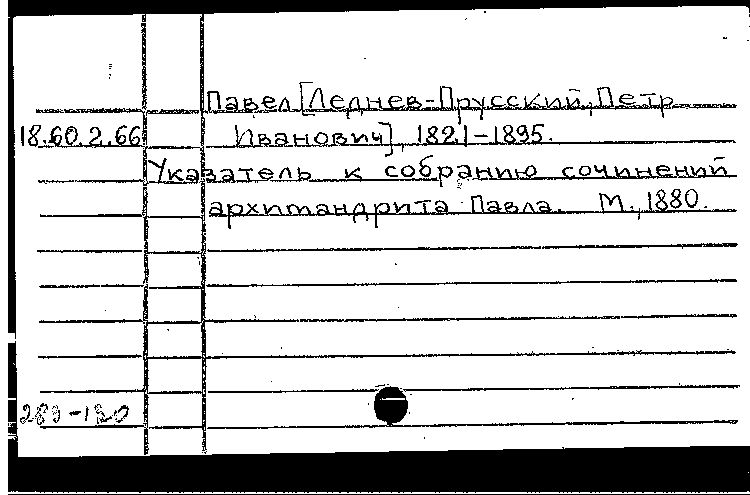 Павел [Леднев-Прусский, Петр
18.60.2.66 Иванович], 1821-1895.
Указатель к собранию сочинений
архимандрита Павла. М., 1880.